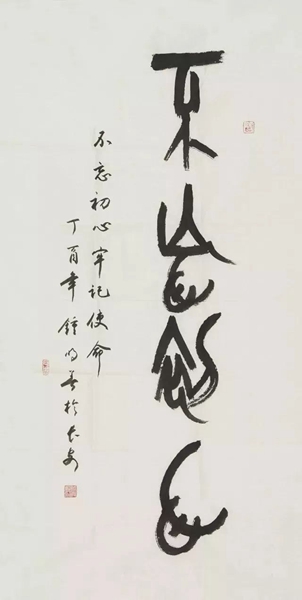 不忘初心
不忘初心牢记使命
丁酉年钟明善于长安